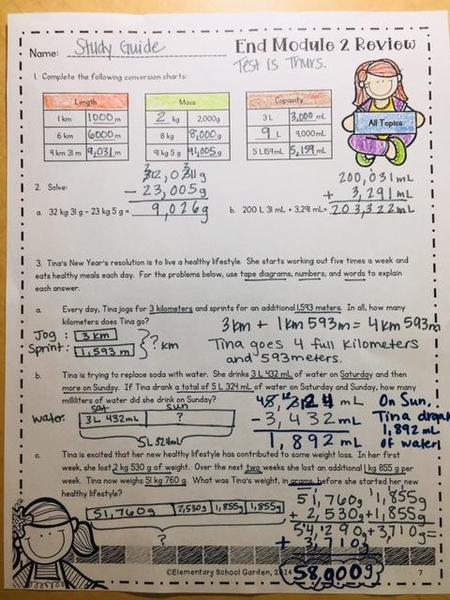 Name: Study Guide
End Module 2 Review
Test is Thurs.
1. Complete the following conversion charts:
Length
1 km 1000 m
6 km 6000 m
9 km 31 m 9,031 m
Mass
2 kg 2,000g
8 kg 8,000 g
91 kg 5 g 91,005 g
Capacity
3 L 3,000 mL
9 L 9,000mL
5 L 159mL 5,159 mL
All Topics
2. Solve:
- 23,005g
9,026g
a. 32 kg 31 g – 23 kg 5 g =
200,031 mL
+ 3,291 mL
b. 200 L 31 mL + 3,291 mL= 203,322 mL
3. Tina's New Year's resolution is to live a healthy lifestyle. She starts working out five times a week and
eats healthy meals each day. For the problems below, use tape diagrams, numbers, and words to explain
each answer.
a. Every day, Tina jogs for 3 kilometers and sprints for an additional 1,593 meters. In all, how many
kilometers does Tina go?
3km + 1km 593m = 4km 593m
Jog: 3 km
Sprint: 1,593 m
? km
Tina goes 4 full kilometers
and 593 meters.
b. Tina is trying to replace soda with water. She drinks 3 L 432 mL of water on Saturday and then
more on Sunday. If Tina drank a total of 5 L 324 mL of water on Saturday and Sunday, how many
milliliters of water did she drink on Sunday?
mL
- 3,432 mL
1,892 mL
On Sun.
Tina drank
1,892 mL
of water
sat sun
water: 3L 432mL ?
5L 324mL
c. Tina is excited that her new healthy lifestyle has contributed to some weight loss. In her first
week, she lost 2 kg 530 g of weight. Over the next two weeks she lost an additional 1 kg 855 g per
week. Tina now weighs 51 kg 760 g. What was Tina's weight, in grams, before she started her new
healthy lifestyle?
51,760g 2,530g 1,855g 1,855g
?
51,760g
+ 2,530g
54,290g
+ 3,710g
58,000g
1,855g
+1,855g
3,710g
©Elementary School Garden, 2014
7